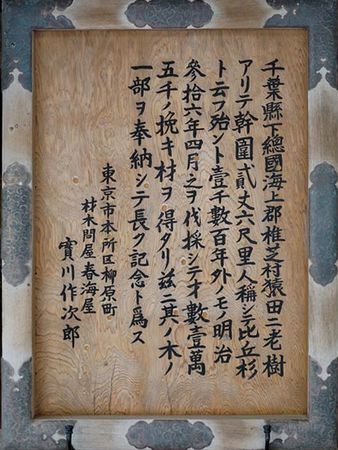 千葉縣下總國海上郡椎芝村猿田ニ老樹
アリテ幹圍貳丈六尺里人稱シテ比丘杉
ト云フ殆ント壹千數百年外ノモノ明治
參拾六年四月之ヲ伐採シテオ數壹萬
五千ノ挽キ材ヲ得タリ茲ニ其ノ木ノ
一部ヲ奉納シテ長ク記念ト爲ス
東京市本所区柳原町
材木問屋春海屋
寳川作次郎